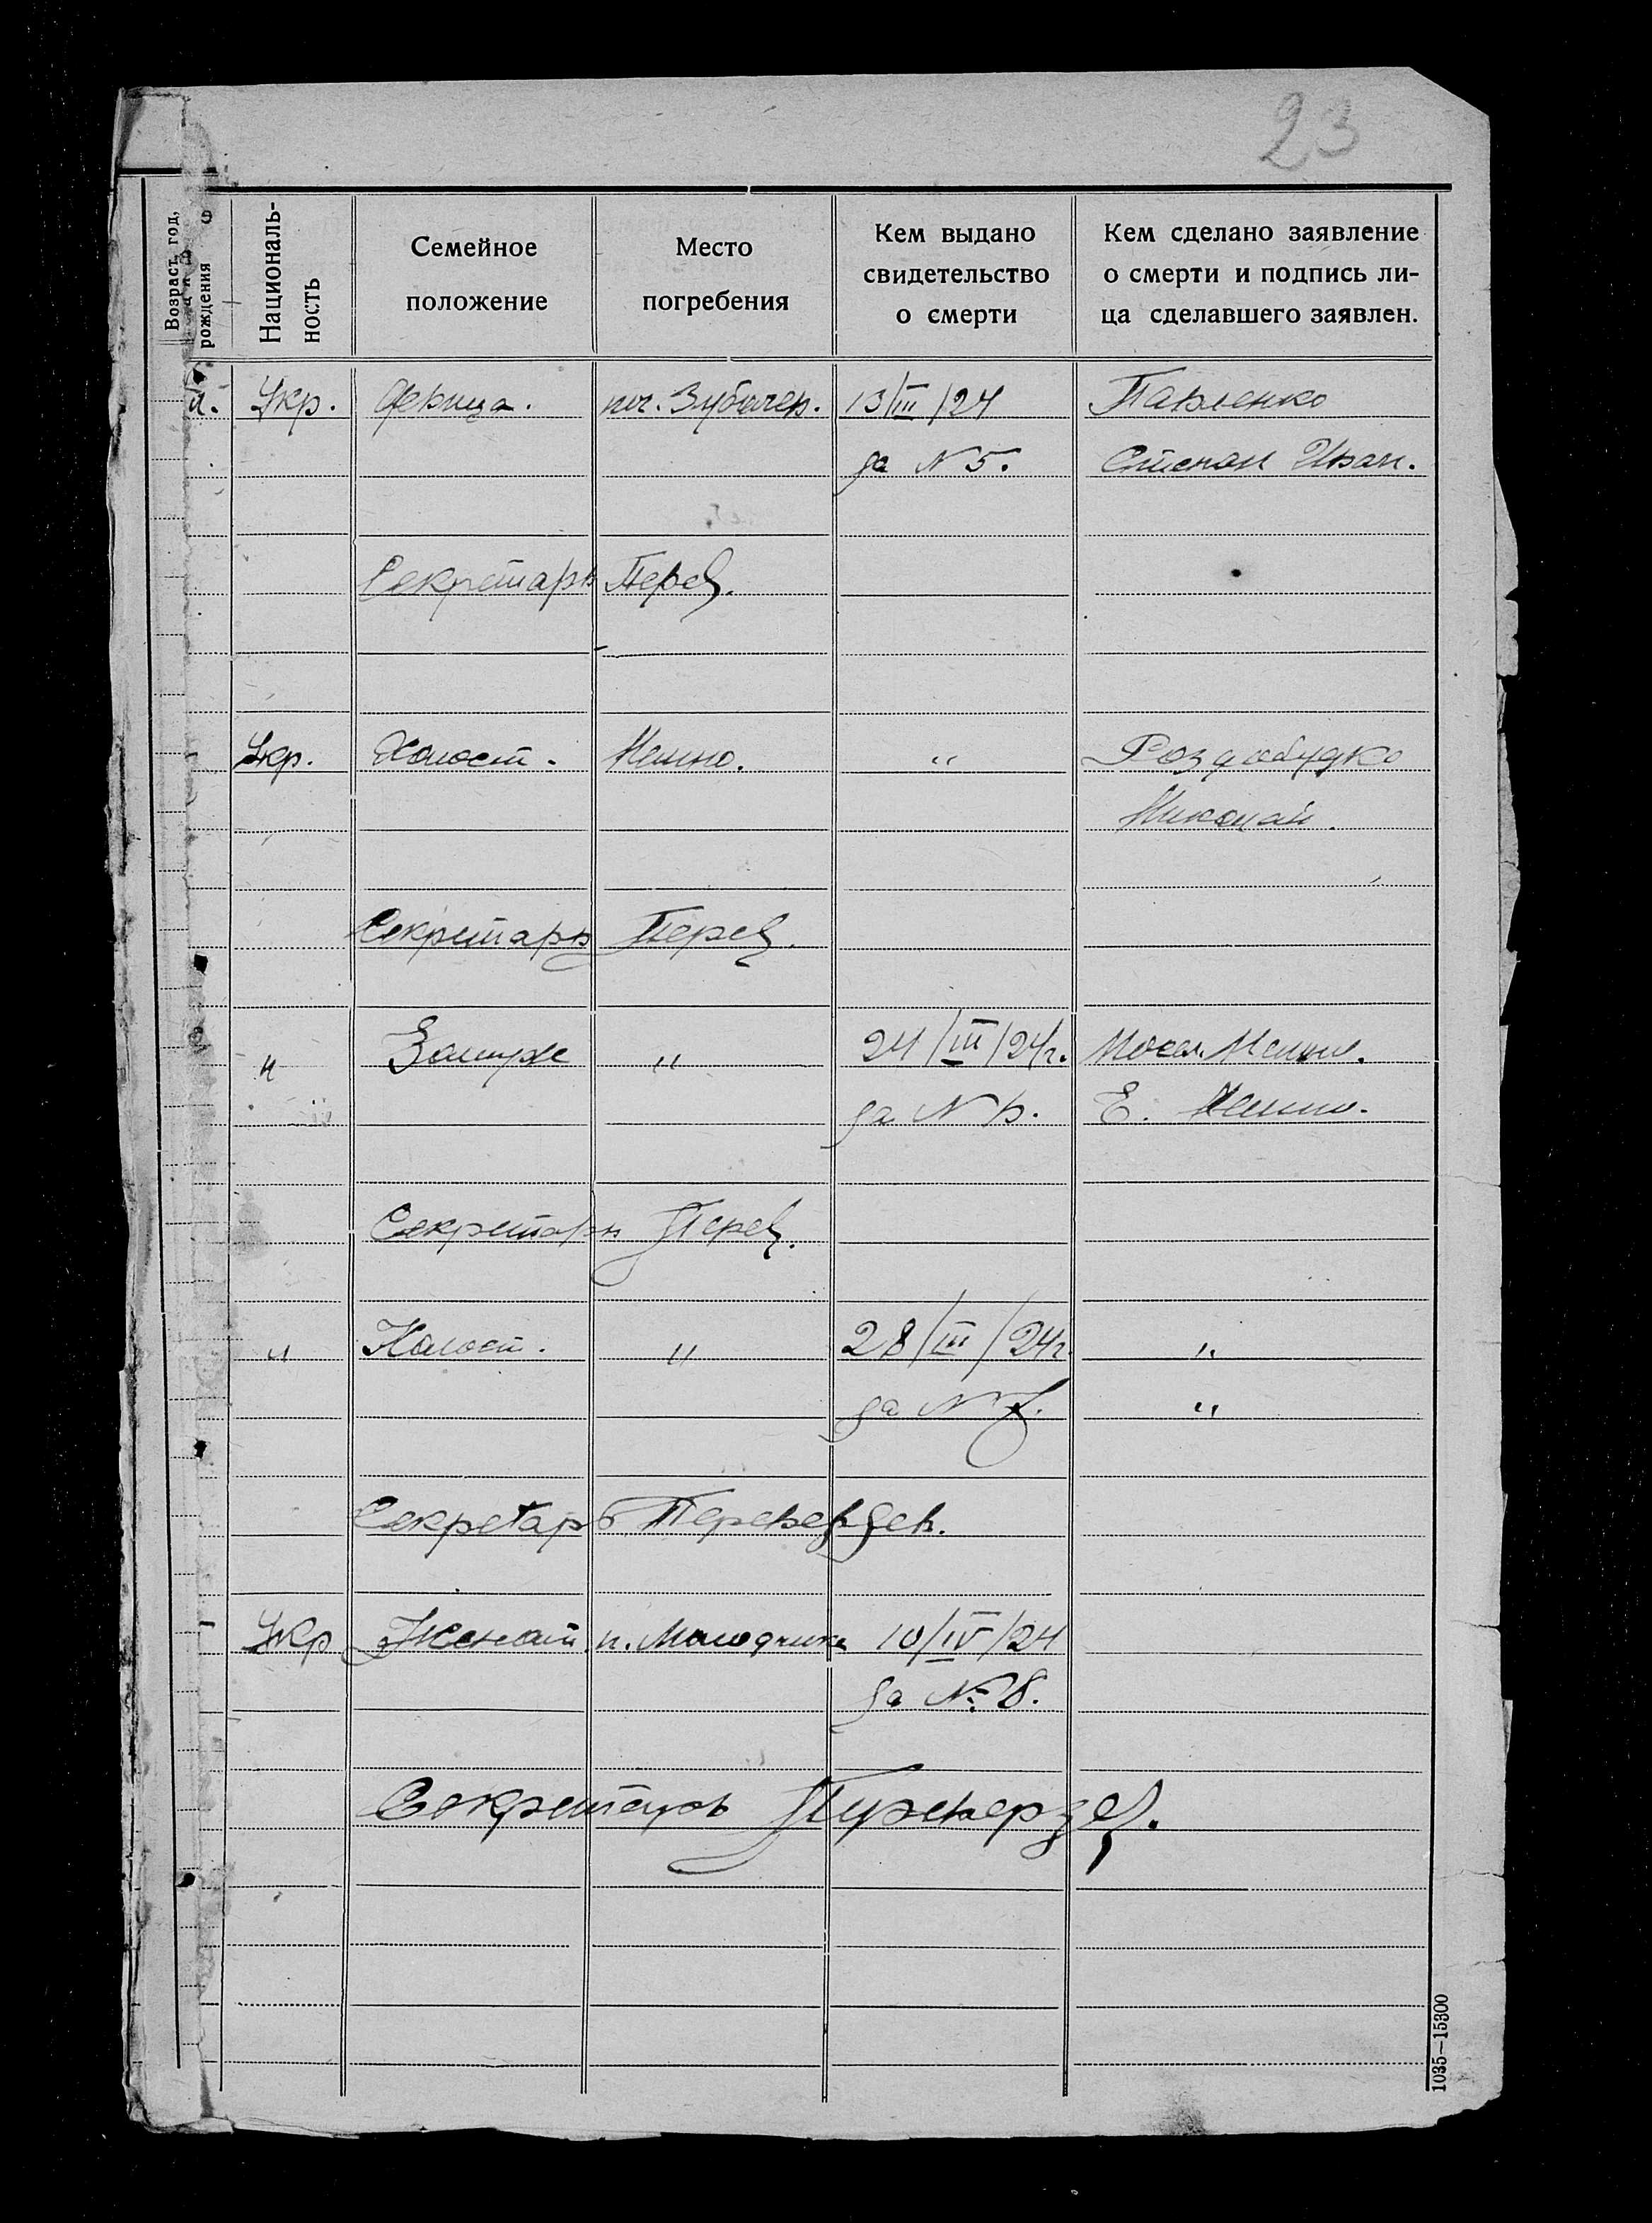 23
Возраст, год,
рождения
Националь-
ность
Семейное
положение
Место
погребения
Кем выдано
свидетельство
о смерти
Кем сделано заявление
о смерти и подпись ли-
ца сделавшего заявлен.
Укр. девица. 13/III/24 Павленко
за N 5. Степан Иван.
Секретарь Перев.
Укр. Холост. " Роздобудко
" Николай.
Секретарь Перев.
" Замуже " 24/III/24г.
за N
Секретарь Перев.
" Холост. " 28/III/24г "
за N "
Секретарь Переверзев.
Укр Женат. 10/IV/24
за № 8.
Секретарь Переверзев.
1035—15300